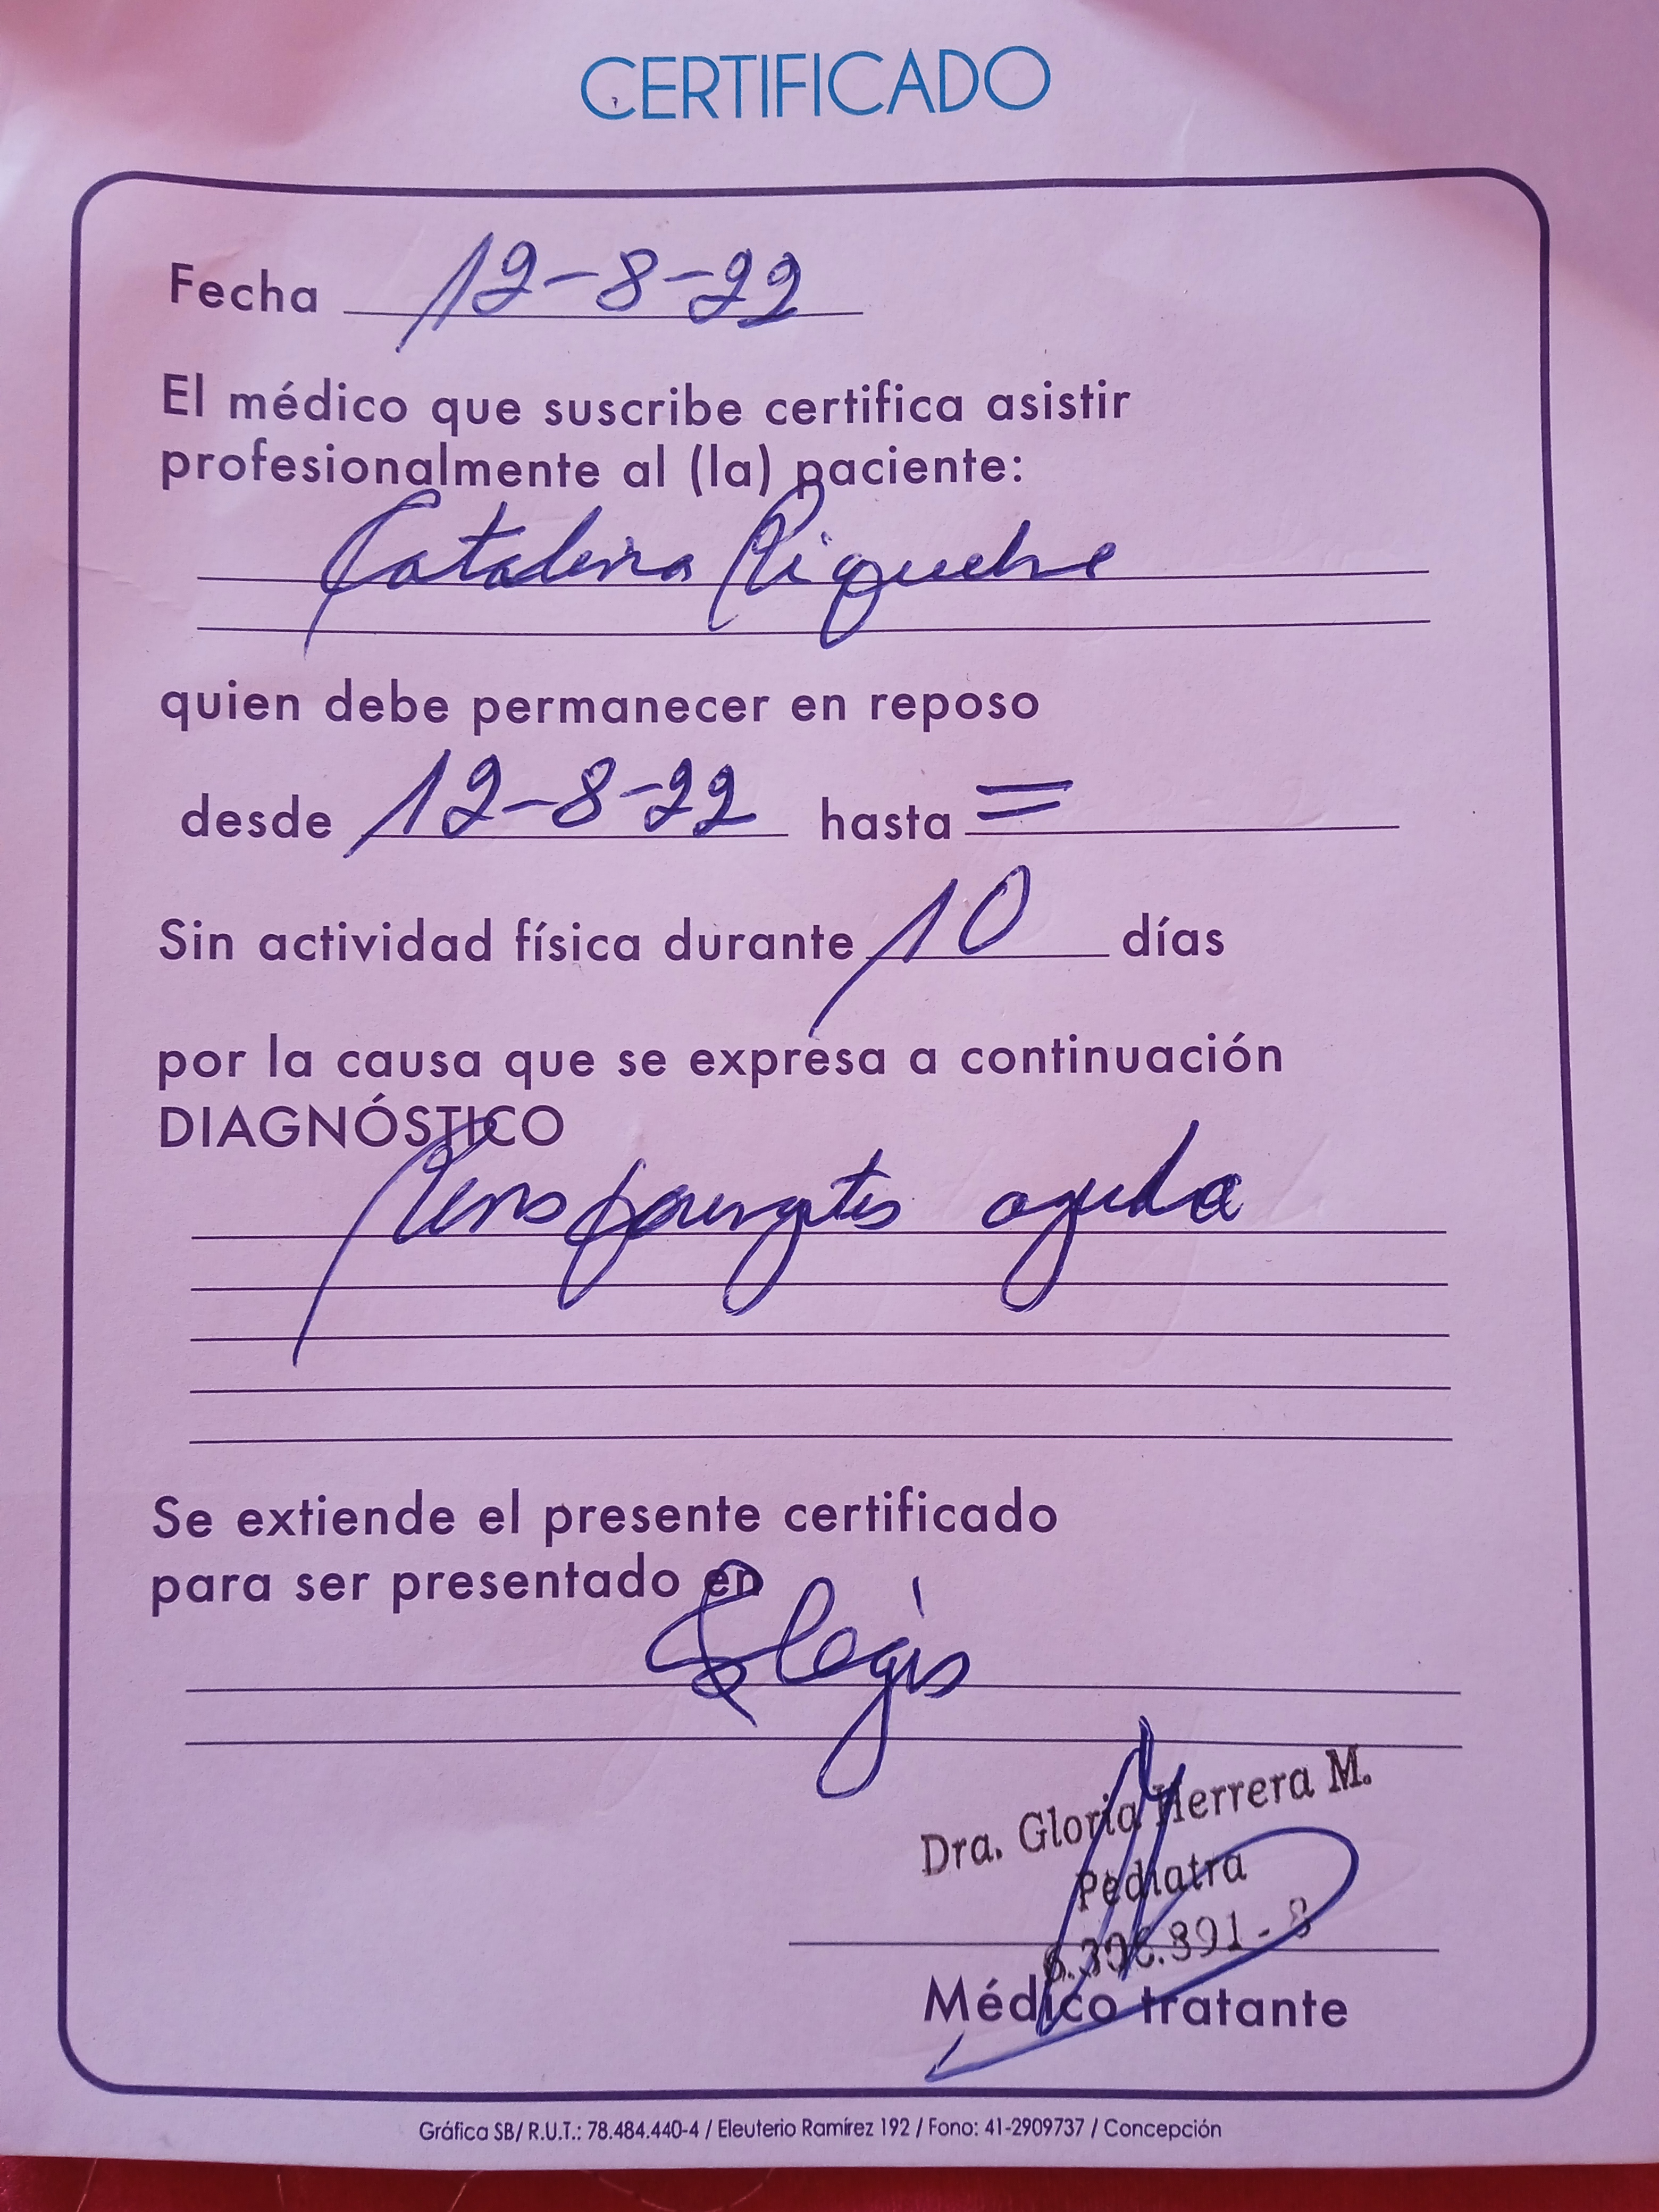 CERTIFICADO
Fecha 12-8-22
El médico que suscribe certifica asistir
profesionalmente al (la) paciente:
Catalina Riquelme
quien debe permanecer en reposo
desde 12-8-22 hasta =
Sin actividad física durante 10 días
por la causa que se expresa a continuación
DIAGNÓSTICO
aguda
Se extiende el presente certificado
para ser presentado en
Colegio
Dra. Gloria Herrera M.
Pediatra
Médico tratante
Gráfica SB/ R.U.T.: 78.484.440-4 / Eleuterio Ramírez 192 / Fono: 41-2909737 / Concepción